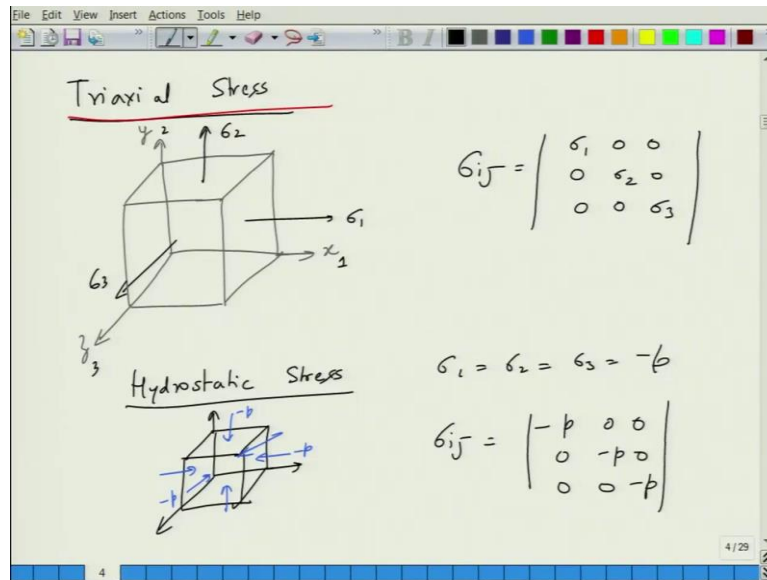 File Edit View Insert Actions Tools Help
B I
Triaxial Stress
y 2
σ2
σ1
x 1
σ3
z 3
σij = | σ1 0 0
0 σ2 0
0 0 σ3 |
Hydrostatic Stress
σ1 = σ2 = σ3 = -p
-p
-p
-p
σij = | -p 0 0
0 -p 0
0 0 -p |
4/29
4